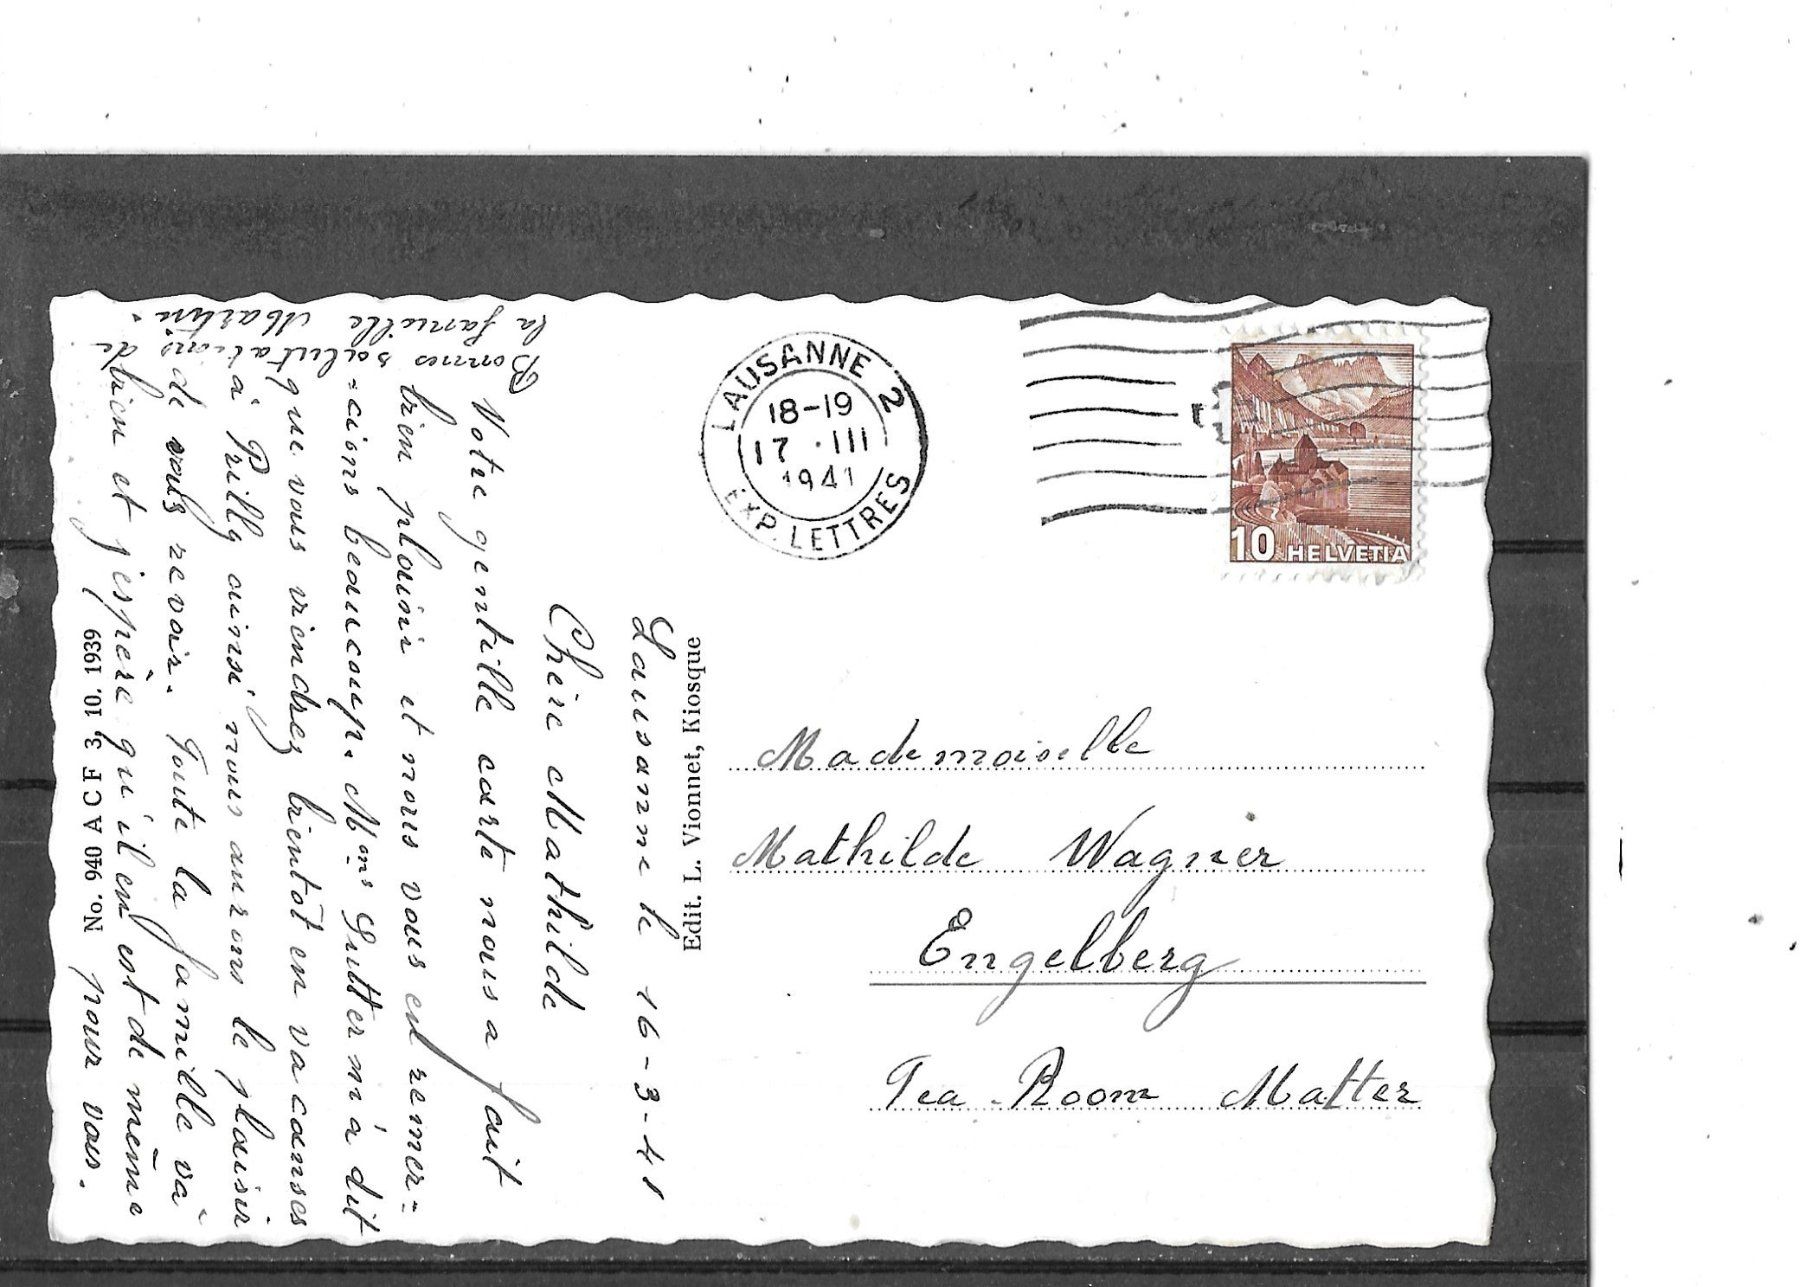 LAUSANNE 2
18-19
17 · III
1941
EXP. LETTRES
10 HELVETIA
Mademoiselle
Mathilde Wagner
Engelberg
Tea-Room Matter
Edit. L. Vionnet, Kiosque
Lausanne le 16-3-41
Chère Mathilde
Votre gentille carte nous a fait
bien plaisir et nous vous en remer=
=cions beaucoup. Mme Sutter m'a dit
que vous viendrez bientôt en vacanses
à Prilly ainsi nous aurons le plaisir
de vous revoir. Toute la famille và
bien et j'espère qu'il en est de même
pour vous.
Bonnes salutations de
la famille Martin.
No. 940 A C F 3. 10. 1939